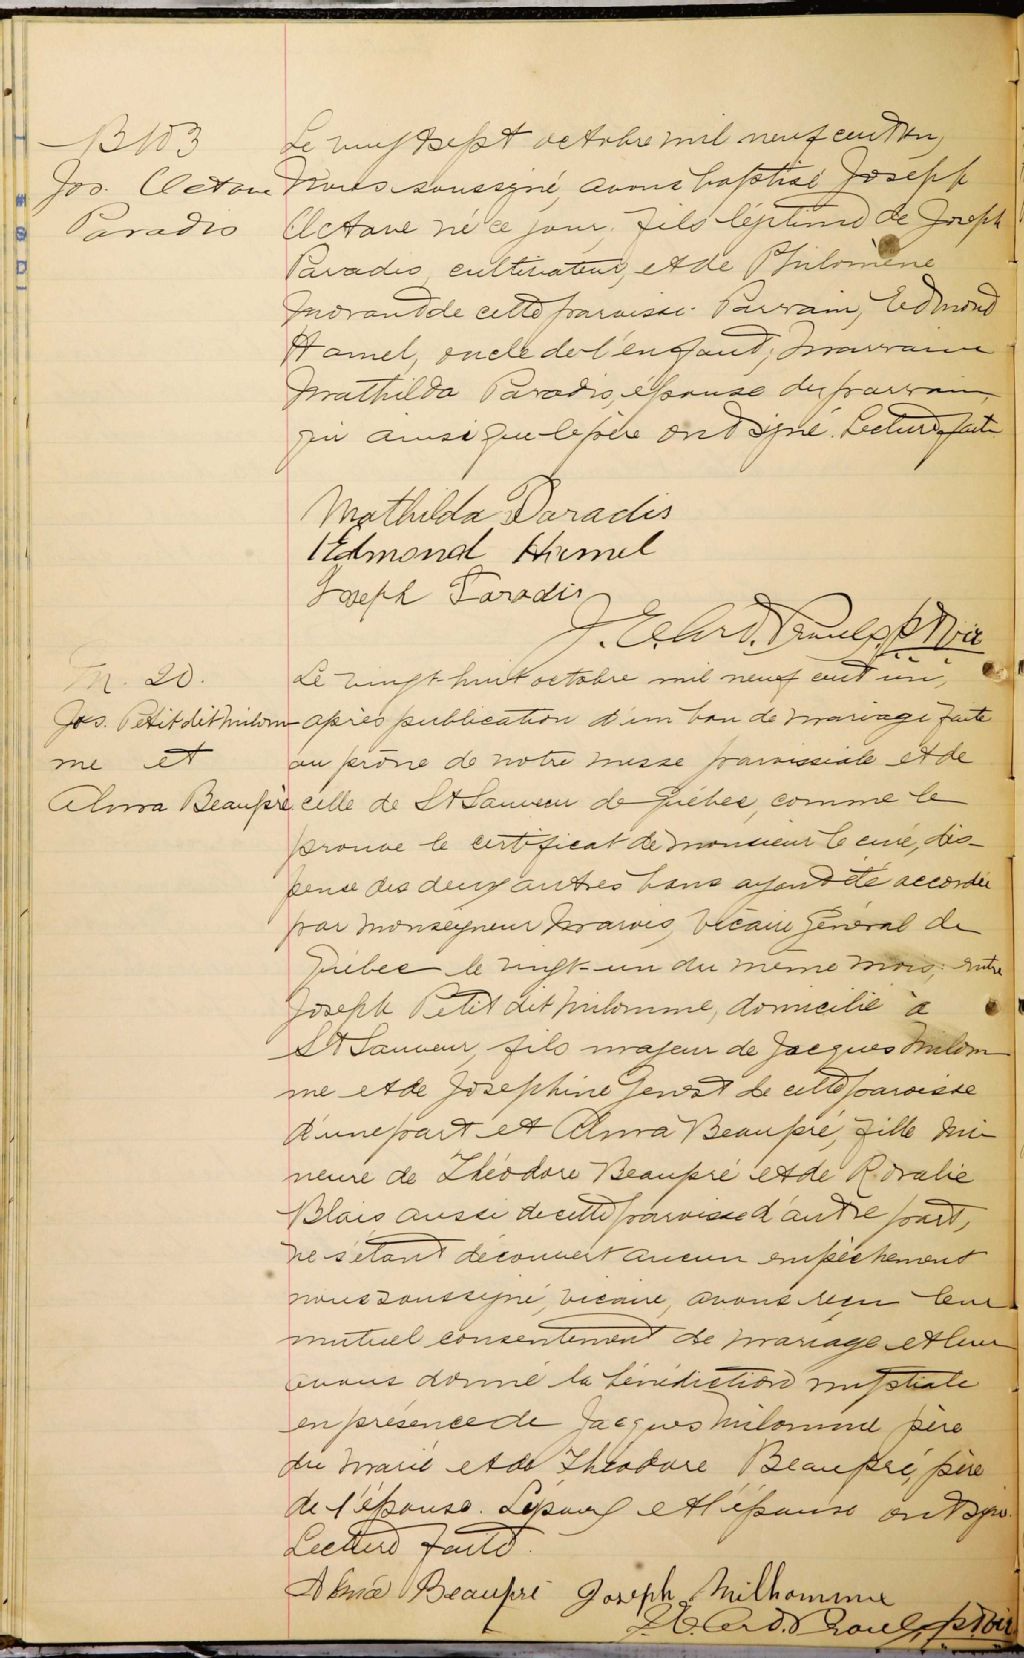 B103
Jos. Octave
Paradis
Le vingt sept octobre mil neuf cent un,
Nous soussigné, avons baptisé Joseph
Octave né ce jour, fils légitime de Joseph
Paradis, cultivateur, et de Philomène
Morand de cette paroisse. Parrain, Edmond
Hamel, oncle de l'enfant; Marraine
Mathilda Paradis, épouse du parrain,
qui ainsi que le père ont signé. Lecture faite
Mathilda Paradis
Edmond Hamel
Joseph Paradis
J. E. Proulx, ptre vic
M. 20.
Jos. Petit dit Milom-
me et
Alma Beaupré
Le vingt-huit octobre mil neuf cent un,
après publication d'un ban de mariage faite
au prône de notre messe paroissiale et de
celle de St Sauveur de Québec, comme le
prouve le certificat de monsieur le curé, dis-
pense des deux autres bans ayant été accordée
par Monseigneur Marois, Vicaire Général de
Québec le vingt-un du même mois; entre
Joseph Petit dit Milomme, domicilié à
St Sauveur, fils majeur de Jacques Milom-
me et de Joséphine Genest de cette paroisse
d'une part et Alma Beaupré, fille mi-
neure de Théodore Beaupré et de Rosalie
Blais aussi de cette paroisse d'autre part,
ne s'étant découvert aucun empêchement
nous soussigné, vicaire, avons reçu leur
mutuel consentement de mariage et leur
avons donné la bénédiction nuptiale
en présence de Jacques Milomme père
du marié et de Théodore Beaupré, père
de l'épouse. L'époux et l'épouse ont signé.
Lecture faite.
Alma Beaupré Joseph Milhomme
J. E. Proulx, ptre vic